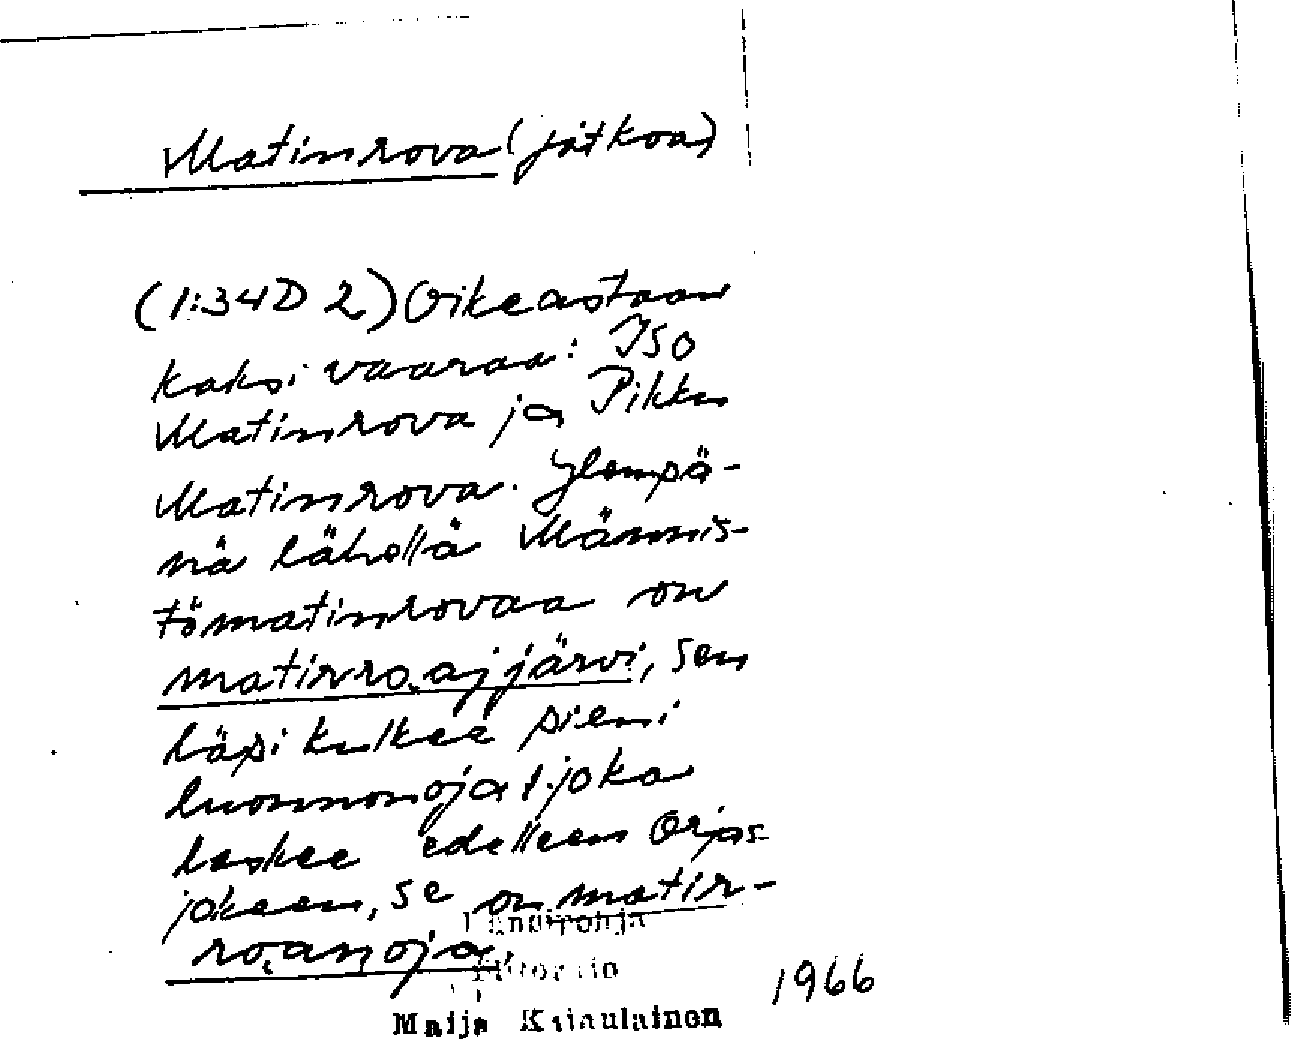 Matinrova (jatkoa)
(1:34D 2) Oikeastaan
kaksi vaaraa: Iso
Matinrova ja Pikku
Matinrova. Ylempä-
nä lähellä Männis-
tömatinrovaa on
matirro̬ajjärvi, sen
läpi kulkee pieni
luonnonoja, joka
laskee edelleen Orjas-
jokeen, se on matir-
ro̬anoja.
Maija Kainulainen
1966